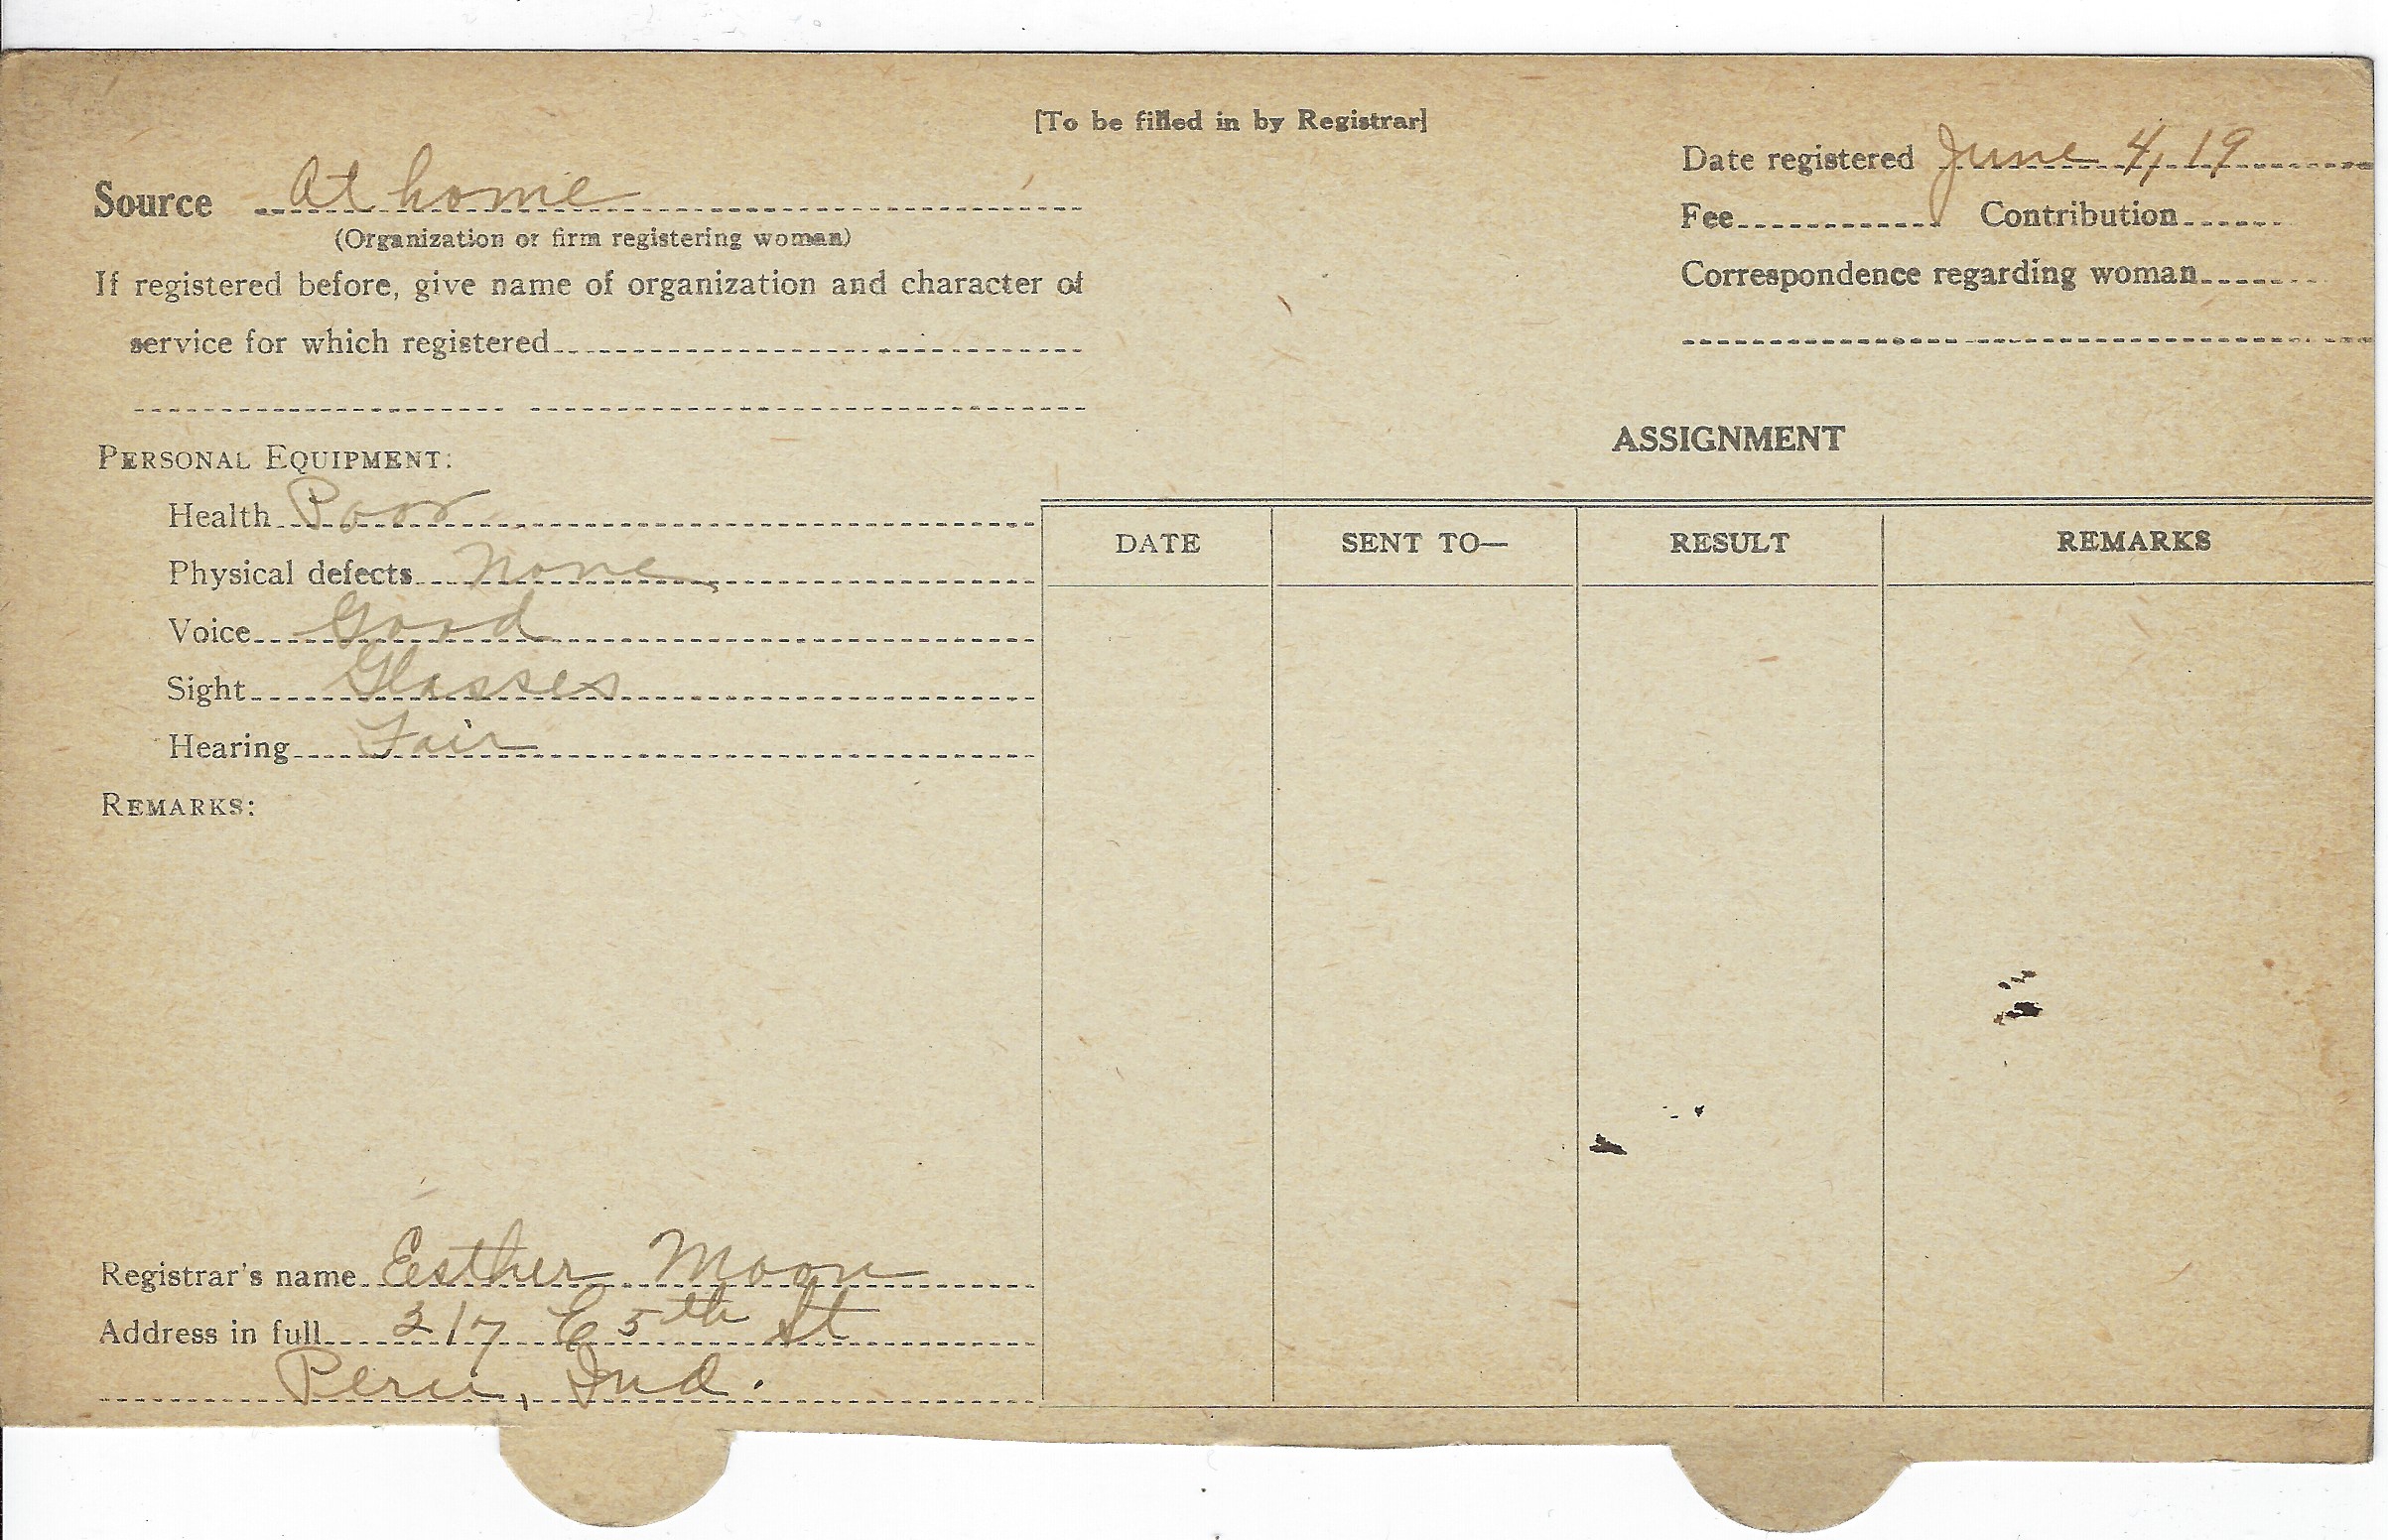 [To be filled in by Registrar]
Source At home
(Organization or firm registering woman)
If registered before, give name of organization and character of
service for which registered
Date registered June 4, 19
Fee Contribution
Correspondence regarding woman
PERSONAL EQUIPMENT:
Health Poor
Physical defects none
Voice Good
Sight Glasses
Hearing Fair
REMARKS:
Registrar's name Esther Moon
Address in full 217 E 5th St
Peru, Ind.
ASSIGNMENT
DATE SENT TO— RESULT REMARKS